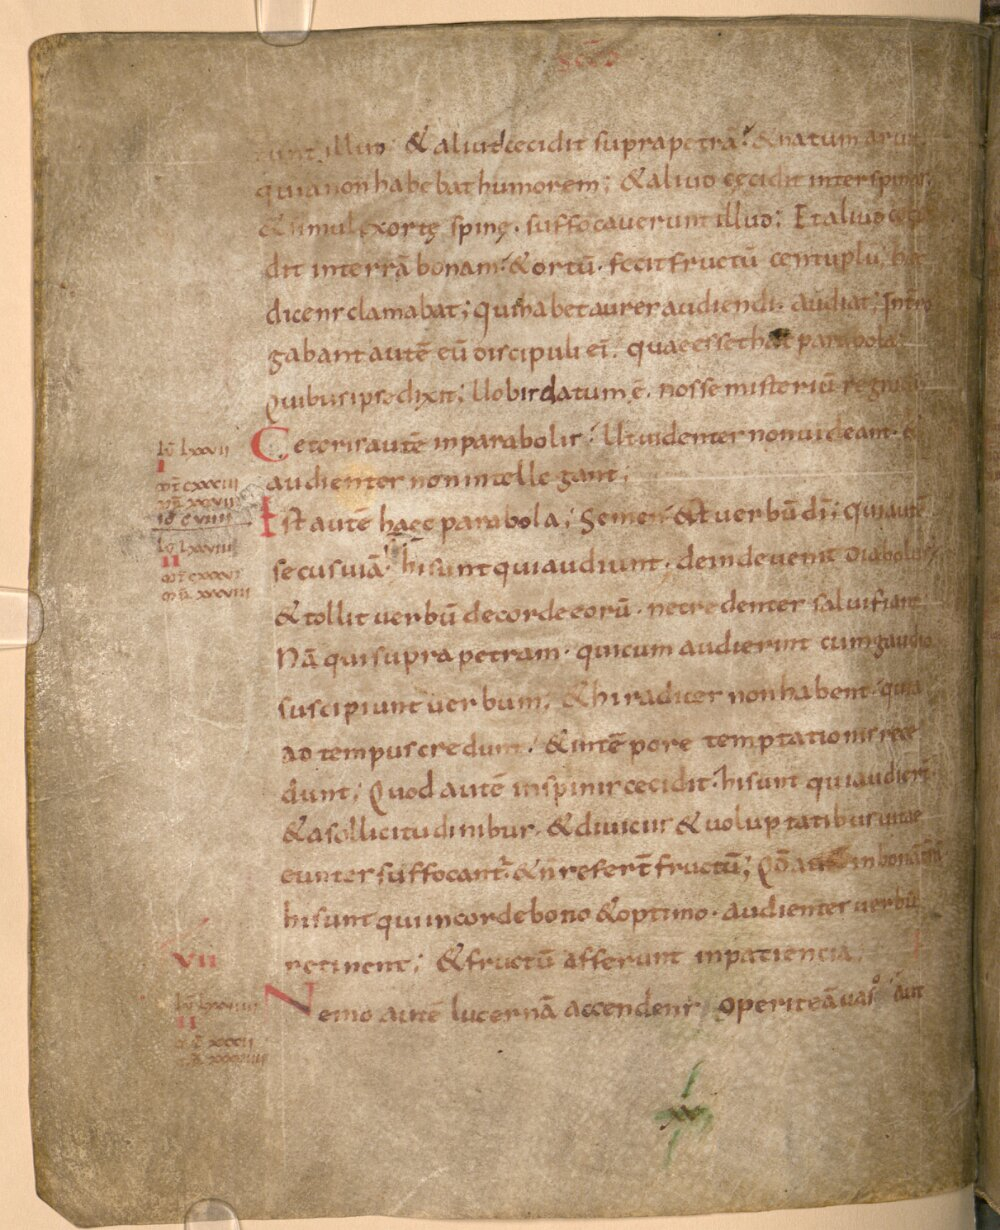 illud; & aliud cecidit supra petrā; & natum aruit
quia non habebat humorem; & aliud cecidit inter spinas
& simul exortę spinę. suffocauerunt illud; Et aliud ceci
dit in terrā bonam. & ortū. fecit fructū centuplū; hęc
dicens clamabat; qui habet aures audiendi. audiat; Intrro
gabant autē eū discipuli ei. quae esset haec parabola;
Quibus ipse dixit; Uobis datum ē. nosse misteriū regni
Ceteris autē in parabolis; Ut uidentes non uideant. &
audientes non intellegant;
Est autē haec parabola; Semen est uerbū di; qui autē
secus uiā hi sunt qui audiunt. deinde uenit diabolus
& tollit uerbū de corde eorū. ne credentes salui fiant
Nā qui supra petram. qui cum audierint cum gaudio
suscipiunt uerbum; & hi radices non habent. quia
ad tempus credunt. & in tēpore temptationis rece
dunt; Quod autē in spinis cecidit. hi sunt qui audiert
& a sollicitudinibus. & diuiciis & uoluptatibus uitae
euntes suffocant. & ñ refert fructū; Qd autē in bonā
hi sunt qui in corde bono & optimo. audientes uerbū
retinent; & fructū afferunt in patiencia;
VII
Nemo autē lucernā accendens operit eā uaso aut
lū lxxvii
I
mt cxxxiii
io cviiii
lū lxxviii
II
mt cxxxv
II